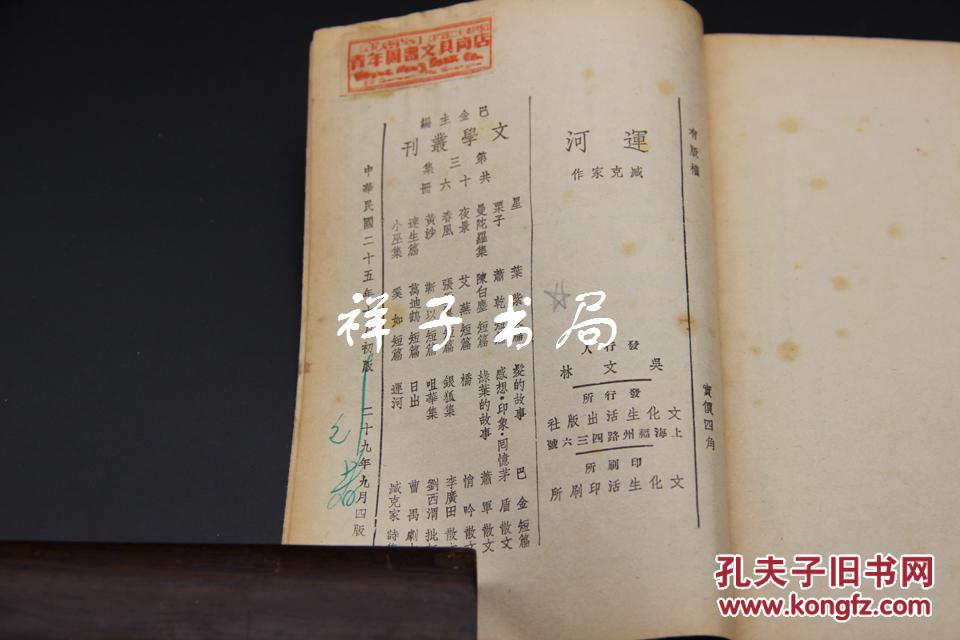 青年圖書文具商店
有版權
實價四角
運河
臧克家作
發行人
吳文林
發行所
文化生活出版社
上海福州路四三六號
印刷所
文化生活印刷所
巴金主編
文學叢刊
第三集
共十六冊
星 葉紫 短篇
栗子 蕭乾 短篇
曼陀羅集 陳白塵 短篇
夜景 艾蕪 短篇
春風 張 短篇
黃沙 靳以 短篇
達生篇 萬迪鶴 短篇
小巫集 奚如 短篇
髮的故事 巴金 短篇
感想·印象·囘憶 茅盾 散文
綠葉的故事 蕭軍 散文
橋 悄吟 散文
銀狐集 李廣田 散文
咀華集 劉西渭 批
日出 曹禺 劇
運河 臧克家 詩
中華民國二十五年 初版
二十九年九月四版
祥子书局
孔夫子旧书网
www.kongfz.com